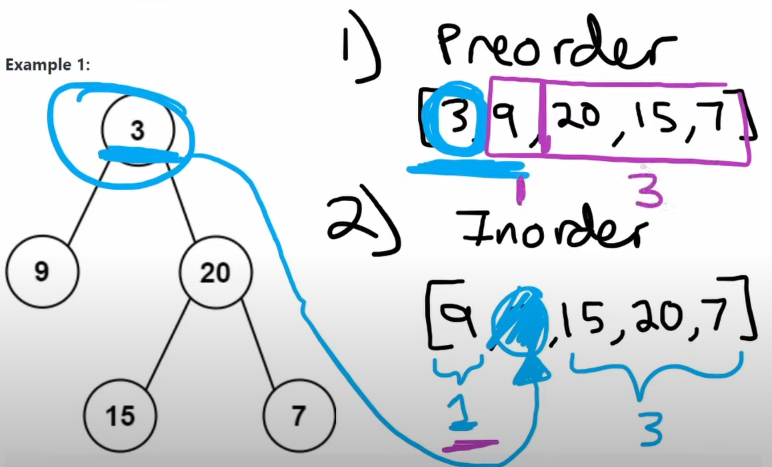 Example 1:
3
9
20
15
7
1) Preorder
[3, 9, 20, 15, 7]
1 3
2) Inorder
[9, , 15, 20, 7]
1 3